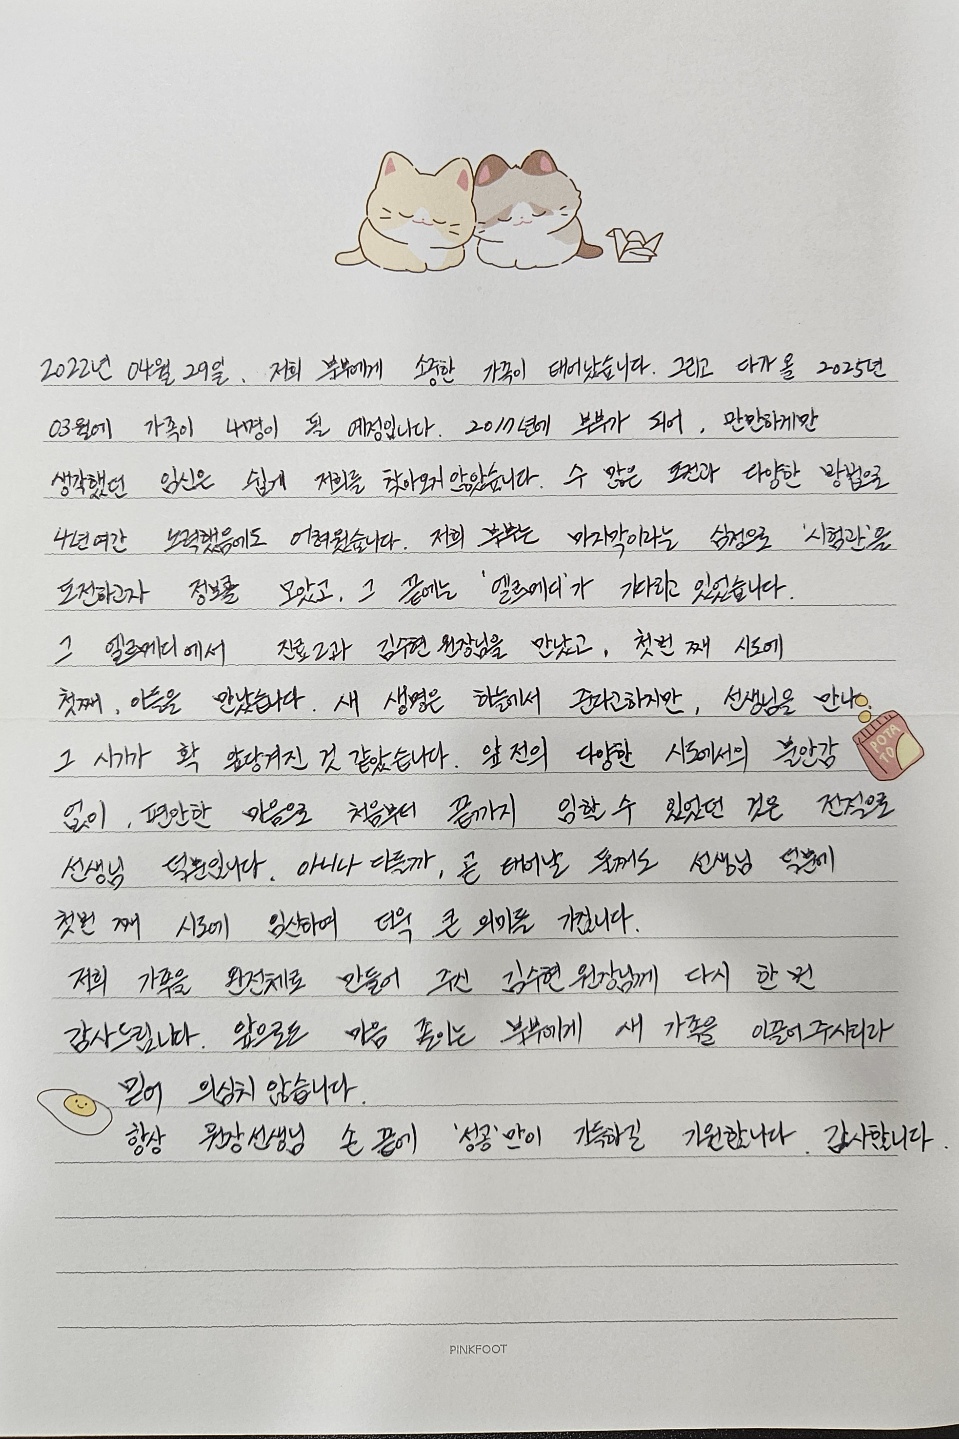 2022년 04월 29일. 저희 부부에게 소중한 가족이 태어났습니다. 그리고 다가올 2025년
03월에 가족이 4명이 될 예정입니다. 2017년에 부부가 되어, 만만하게만
생각했던 임신은 쉽게 저희를 찾아오지 않았습니다. 수 많은 도전과 다양한 방법으로
4년여간 노력했음에도 어려웠습니다. 저희 부부는 마지막이라는 심정으로 '시험관'을
도전하고자 정보를 모았고, 그 끝에는 '엘르메디'가 기다리고 있었습니다.
그 엘르메디에서 진료2과 김수현 원장님을 만났고, 첫번 째 시도에
첫째, 아들을 만났습니다. 새 생명은 하늘에서 준다고하지만, 선생님을 만나
그 시기가 확 앞당겨진 것 같았습니다. 앞 전의 다양한 시도에서의 불안감
없이, 편안한 마음으로 처음부터 끝까지 임할 수 있었던 것은 전적으로
선생님 덕분입니다. 아니나 다를까, 곧 태어날 둘째도 선생님 덕분에
첫번 째 시도에 임신하여 더욱 큰 의미를 가집니다.
저희 가족을 완전체로 만들어 주신 김수현 원장님께 다시 한 번
감사드립니다. 앞으로도 마음 졸이는 부부에게 새 가족을 이끌어주시리라
믿어 의심치 않습니다.
항상 원장선생님 손 끝에 '성공'만이 가득하길 기원합니다. 감사합니다.
POTA
TO
PINKFOOT